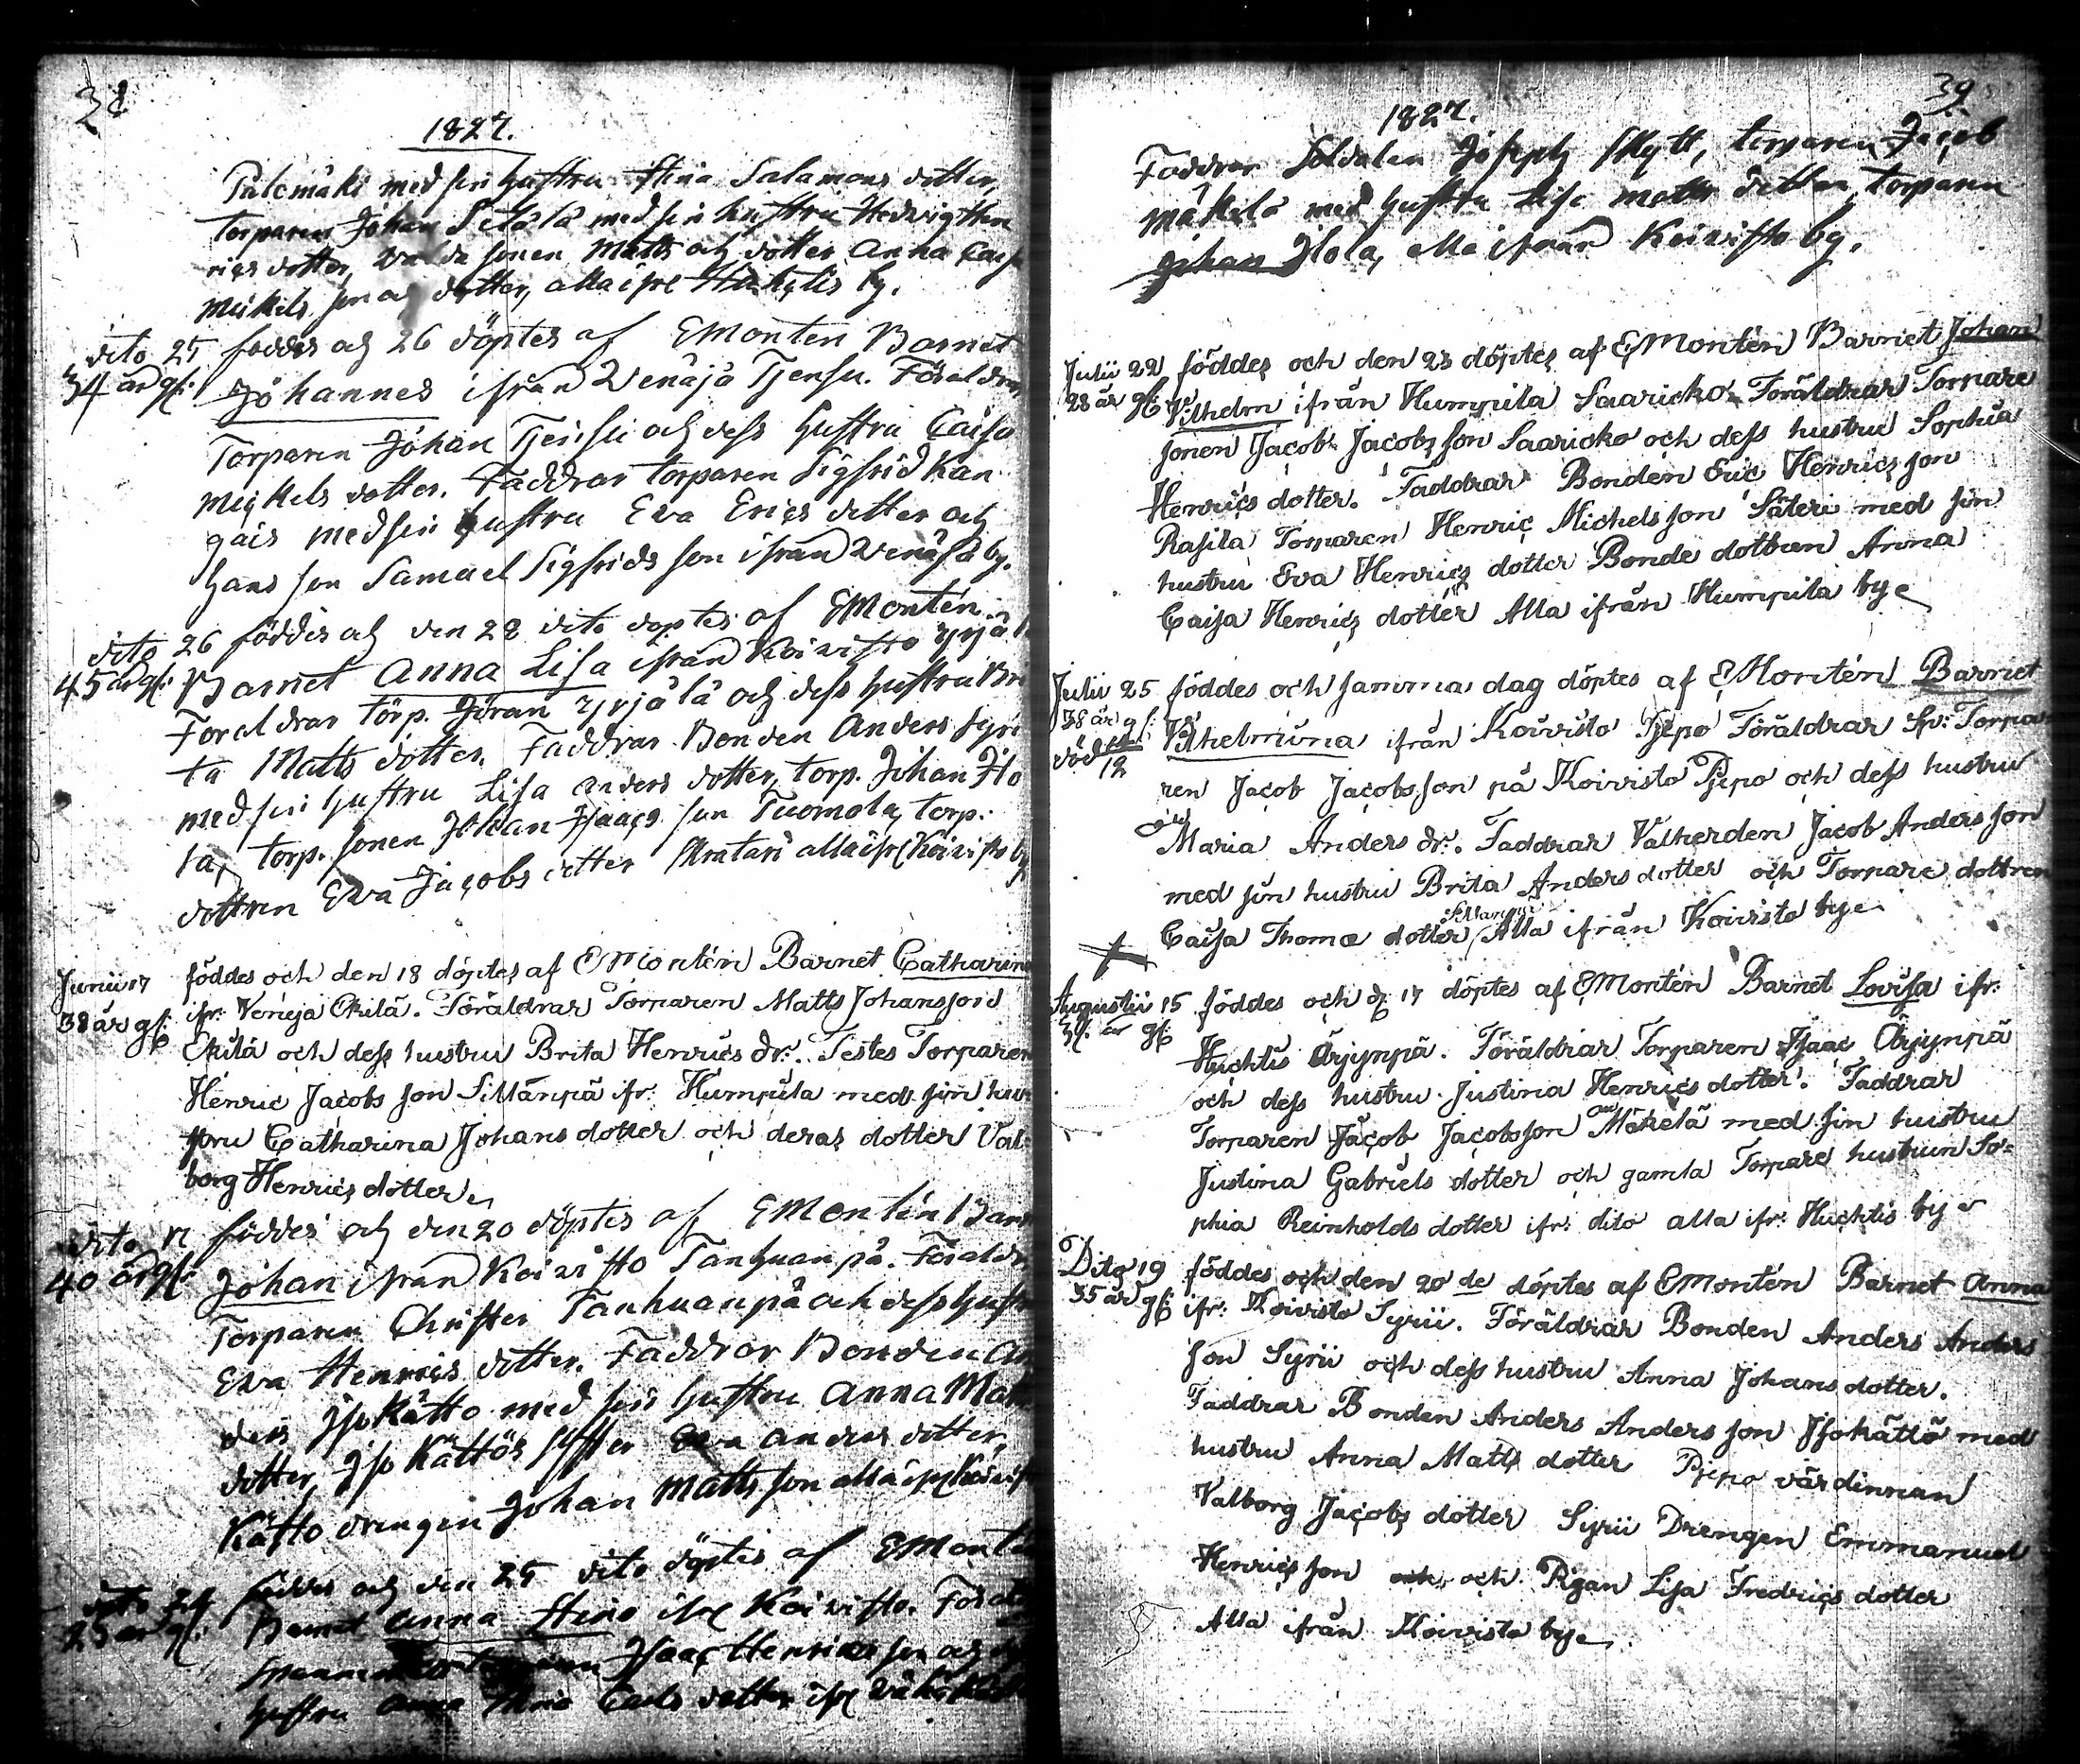 38
1827.
Palomäki med sin hustru Stina Salamons dotter,
torparen Johan Sitälä med sin hustru Hedvig Hen
rics dotter, sonen Matts och dotter Anna Caisa
Mickels son och dotter, alla ifr: Huhtis by.
dito 25 föddes och 26 döptes af EMontén Barnet
34 år gl: Johannes ifrån Venäjä Tjensu. Föräldrar
Torparen Johan Tjensu och dess hustru Caisa
Mickels dotter. Faddrar torparen Sigfrid Kan
gais med sin hustru Eva Erics dotter och
hans son Samuel Sigfrids son ifrån Venäjä by.
dito 26 föddes och den 28 dito döptes af EMontén
45 år gl: Barnet Anna Lisa ifrån Koivisto Yrjälä
Föräldrar torp. Jöran Yrjälä och dess hustru Bri
ta Matts dotter. Faddrar Bonden Anders Syri
med sin hustru Lisa Anders dotter, torp. Johan Ilo
la, torp. sonen Johan Isaacs son Tuomola, torp.
dottren Eva Jacobs dotter alla ifr: Koivisto by
Junii 17 föddes och den 18 döptes af EMontén Barnet Catharina
38 år gl: ifr: Venejä Ekilä. Föräldrar Torparen Matts Johansson
Ekilä och dess hustru Brita Henrics dr:. Testes Torparen
Henric Jacobs son Sillänpä ifr: Humpila med sin hu
stru Catharina Johans dotter och deras dotter Val-
borg Henrics dotter
dito 17 föddes och den 20 döptes af EMontén Barn
40 år gl: Johan ifrån Koivisto Tanhuanpä. Föräldr
Torparen Christer Tanhuanpä och dess hustr
Eva Henrics dotter. Faddrar Bonden An
ders Iso Kättö med sin hustru Anna Matts
dotter, Iso Kättös syster Eva Anders dotter,
Kättö drengen Johan Matts son alla ifr: Koivisto
dito 24 föddes och den 25 dito döptes af EMontén
25 år gl: Barnet Anna Stina ifr: Koivisto. Föräld
Isaac Henrics son och
hustru Anna Stina Carls dotter ifr:
39
1827.
Faddrar Soldaten Joseph Skytt, torparen Jacob
Mäkelä med hustru Lisa Matts dotter, torparen
Johan Ilola, alla ifrån Koivisto by.
Julii 22 föddes och den 23 döptes af EMontén Barnet Johan
28 år gl: Vilhelm ifrån Humpila Saaricko. Föräldrar Torpare
sonen Jacob Jacobs son Saaricko och dess hustru Sophia
Henrics dotter. Faddrar Bonden Eric Henrics son
Rasila Torparen Henric Michels son Säteri med sin
hustru Eva Henrics dotter Bonde dottren Anna
Caisa Henrics dotter Alla ifrån Humpila bye
Julii 25 föddes och samma dag döptes af EMontén Barnet
38 år gl: Vilhelmina ifrån Koivisto Pjepo Föräldrar Sp: Torpa
död 12
ren Jacob Jacobs son på Koivisto Pjepo och dess hustru
Maria Anders dr:. Faddrar Vatherden Jacob Anders son
med sin hustru Brita Anders dotter och Torpare dottren
Caisa Thomæ dotter Sillanpä Alla ifrån Koivisto bye
Augustii 15 föddes och d: 17 döptes af EMontén Barnet Lovisa ifr:
år gl: Huchtis Ärjynpä. Föräldrar Torparen Isaac Ärjynpä
och dess hustru Justina Henrics dotter. Faddrar
Torparen Jacob Jacobsson Mäkelä med sin hustru
Justina Gabriels dotter och gamla Torpare hustrun So-
phia Reinholds dotter ifr: dito alla ifr: Huchtis bye
Dito 19 föddes och den 20 de döptes af EMontén Barnet Anna
35 år gl: ifr: Koivisto Syrii. Föräldrar Bonden Anders Anders
son Syrii och dess hustru Anna Johans dotter.
Faddrar Bonden Anders Anders son Isokättö med
hustru Anna Matts dotter Pjepo värdinnan
Valborg Jacobs dotter Syrii Drengen Emmanuel
Henrics son och, och Pigan Lisa Fredrics dotter
Alla ifrån Koivisto bye